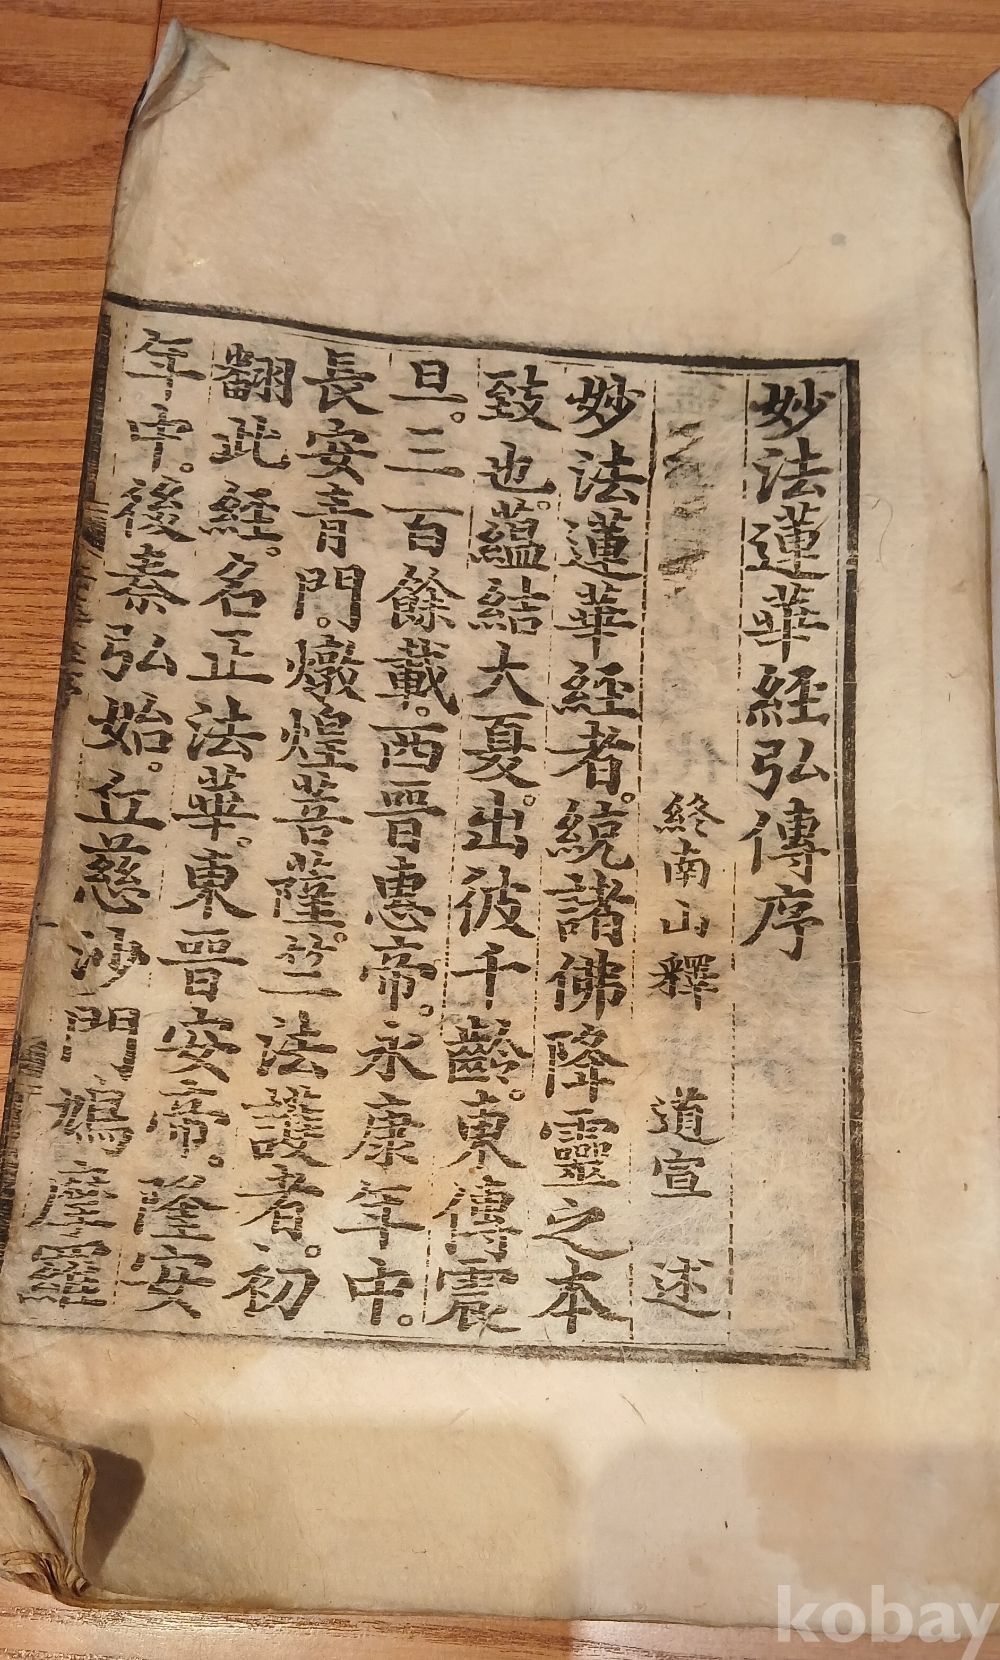 妙法蓮華経弘傳序
終南山釋 道宣 述
妙法蓮華経者。統諸佛降靈之本
致也。蘊結大夏。出彼千齡。東傳震
旦。三百餘載。西晋惠帝。永康年中。
長安青門。燉煌菩薩。竺法護者。初
翻此経。名正法華。東晋安帝。隆安
年中。後秦弘始。丘慈沙門鳩摩羅
kobay